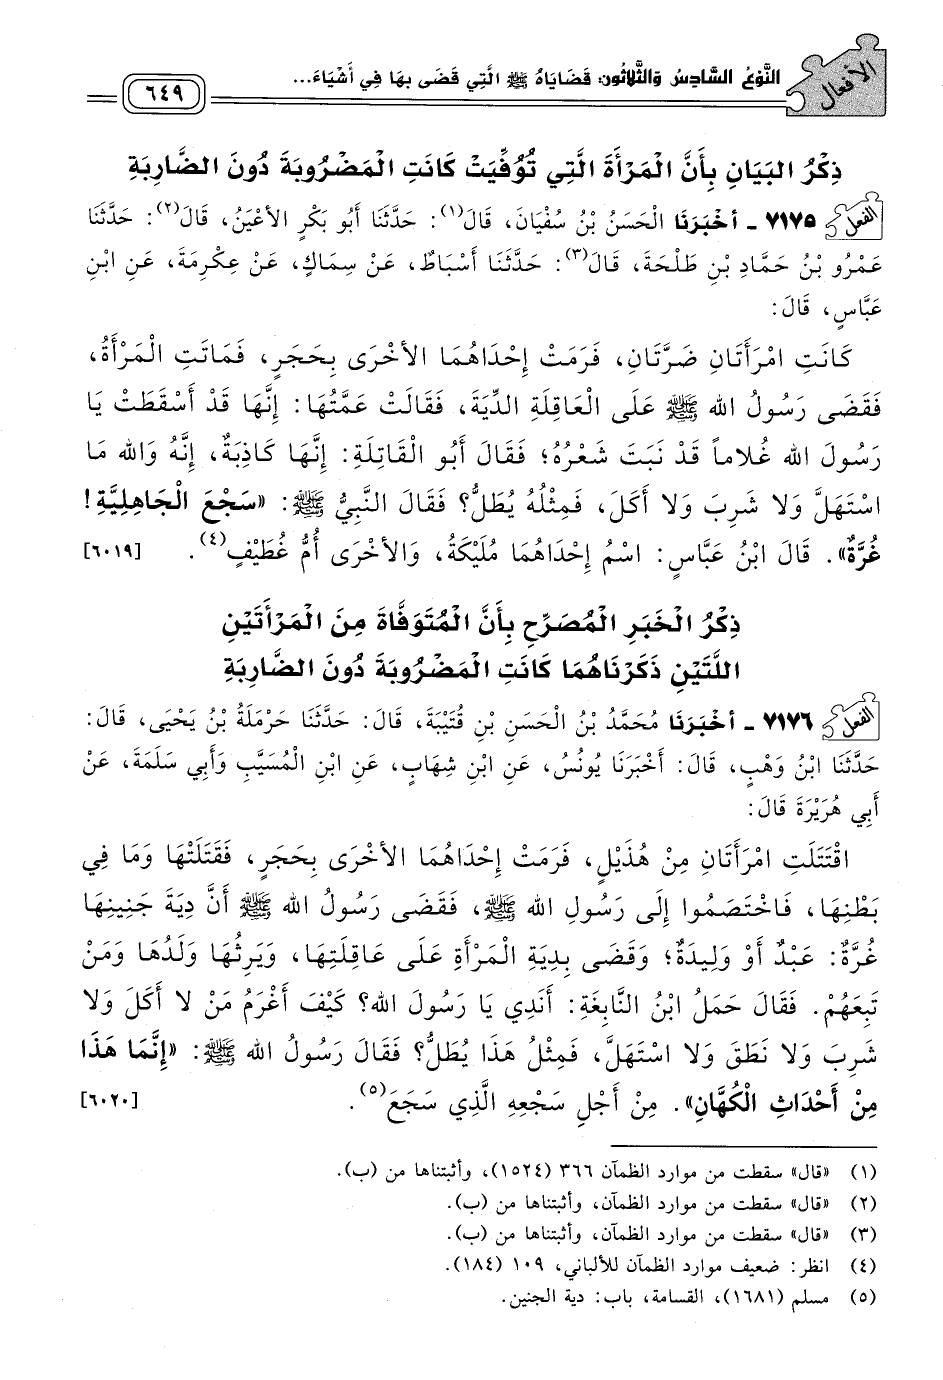 الأفعال
النَّوْعُ السَّادِسُ وَالثَّلَاثُونَ: قَضَايَاهُ ﷺ الَّتِي قَضَى بِهَا فِي أَشْيَاءَ...
٦٤٩
ذِكْرُ البَيَانِ بِأَنَّ الْمَرْأَةَ الَّتِي تُوُفِّيَتْ كَانَتِ الْمَضْرُوبَةَ دُونَ الضَّارِبَةِ
الفعل ٧١٧٥ - أَخْبَرَنَا الْحَسَنُ بْنُ سُفْيَانَ، قَالَ(١): حَدَّثَنَا أَبُو بَكْرٍ الأَعْيَنُ، قَالَ(٢): حَدَّثَنَا
عَمْرُو بْنُ حَمَّادِ بْنِ طَلْحَةَ، قَالَ(٣): حَدَّثَنَا أَسْبَاطٌ، عَنْ سِمَاكٍ، عَنْ عِكْرِمَةَ، عَنِ ابْنِ
عَبَّاسٍ، قَالَ:
كَانَتِ امْرَأَتَانِ ضَرَّتَانِ، فَرَمَتْ إِحْدَاهُمَا الأُخْرَى بِحَجَرٍ، فَمَاتَتِ الْمَرْأَةُ،
فَقَضَى رَسُولُ اللهِ ﷺ عَلَى الْعَاقِلَةِ الدِّيَةَ، فَقَالَتْ عَمَّتُهَا: إِنَّهَا قَدْ أَسْقَطَتْ يَا
رَسُولَ اللهِ غُلاماً قَدْ نَبَتَ شَعْرُهُ؛ فَقَالَ أَبُو الْقَاتِلَةِ: إِنَّهَا كَاذِبَةٌ، إِنَّهُ وَاللهِ مَا
اسْتَهَلَّ وَلا شَرِبَ وَلا أَكَلَ، فَمِثْلُهُ يُطَلُّ؟ فَقَالَ النَّبِيُّ ﷺ: «سَجْعَ الْجَاهِلِيَّةِ!
غُرَّةٌ». قَالَ ابْنُ عَبَّاسٍ: اسْمُ إِحْدَاهُمَا مُلَيْكَةُ، وَالأُخْرَى أُمُّ غُطَيْفٍ(٤). [٦٠١٩]
ذِكْرُ الْخَبَرِ الْمُصَرِّحِ بِأَنَّ الْمُتَوَفَّاةَ مِنَ الْمَرْأَتَيْنِ
اللَّتَيْنِ ذَكَرْنَاهُمَا كَانَتِ الْمَضْرُوبَةَ دُونَ الضَّارِبَةِ
الفعل ٧١٧٦ - أَخْبَرَنَا مُحَمَّدُ بْنُ الْحَسَنِ بْنِ قُتَيْبَةَ، قَالَ: حَدَّثَنَا حَرْمَلَةُ بْنُ يَحْيَى، قَالَ:
حَدَّثَنَا ابْنُ وَهْبٍ، قَالَ: أَخْبَرَنَا يُونُسُ، عَنِ ابْنِ شِهَابٍ، عَنِ ابْنِ الْمُسَيَّبِ وَأَبِي سَلَمَةَ، عَنْ
أَبِي هُرَيْرَةَ قَالَ:
اقْتَتَلَتِ امْرَأَتَانِ مِنْ هُذَيْلٍ، فَرَمَتْ إِحْدَاهُمَا الأُخْرَى بِحَجَرٍ، فَقَتَلَتْهَا وَمَا فِي
بَطْنِهَا، فَاخْتَصَمُوا إِلَى رَسُولِ اللهِ ﷺ، فَقَضَى رَسُولُ اللهِ ﷺ أَنَّ دِيَةَ جَنِينِهَا
غُرَّةٌ: عَبْدٌ أَوْ وَلِيدَةٌ؛ وَقَضَى بِدِيَةِ الْمَرْأَةِ عَلَى عَاقِلَتِهَا، وَيَرِثُهَا وَلَدُهَا وَمَنْ
تَبِعَهُمْ. فَقَالَ حَمَلُ ابْنُ النَّابِغَةِ: أَنَدِي يَا رَسُولَ اللهِ؟ كَيْفَ أَغْرَمُ مَنْ لا أَكَلَ وَلا
شَرِبَ وَلا نَطَقَ وَلا اسْتَهَلَّ، فَمِثْلُ هَذَا يُطَلُّ؟ فَقَالَ رَسُولُ اللهِ ﷺ: «إِنَّمَا هَذَا
مِنْ أَحْدَاثِ الْكُهَّانِ». مِنْ أَجْلِ سَجْعِهِ الَّذِي سَجَعَ(٥). [٦٠٢٠]
(١) «قال» سقطت من موارد الظمآن ٣٦٦ (١٥٢٤)، وأثبتناها من (ب).
(٢) «قال» سقطت من موارد الظمآن، وأثبتناها من (ب).
(٣) «قال» سقطت من موارد الظمآن، وأثبتناها من (ب).
(٤) انظر: ضعيف موارد الظمآن للألباني، ١٠٩ (١٨٤).
(٥) مسلم (١٦٨١)، القسامة، باب: دية الجنين.